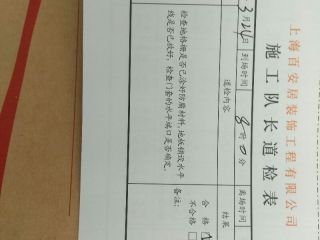 上海百安居装饰工程有限公司
施工队长道检表
3月24日 到场时间 8时0分 离场时间
道检内容 结果
检查地格栅是否已涂好防腐材料,地板铺设水平
线是否已放好,检查门套的水平端口是否确定。
合格
不合格
备注: